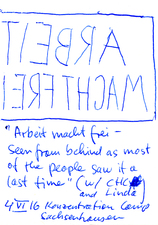 ARBEIT
MACHT FREI
"Arbeit macht frei -
Seen from behind as most
of the people saw it a
last time" (w/ CHC
and Linda)
4 VI 16 Konzentration Camp
Sachsenhausen